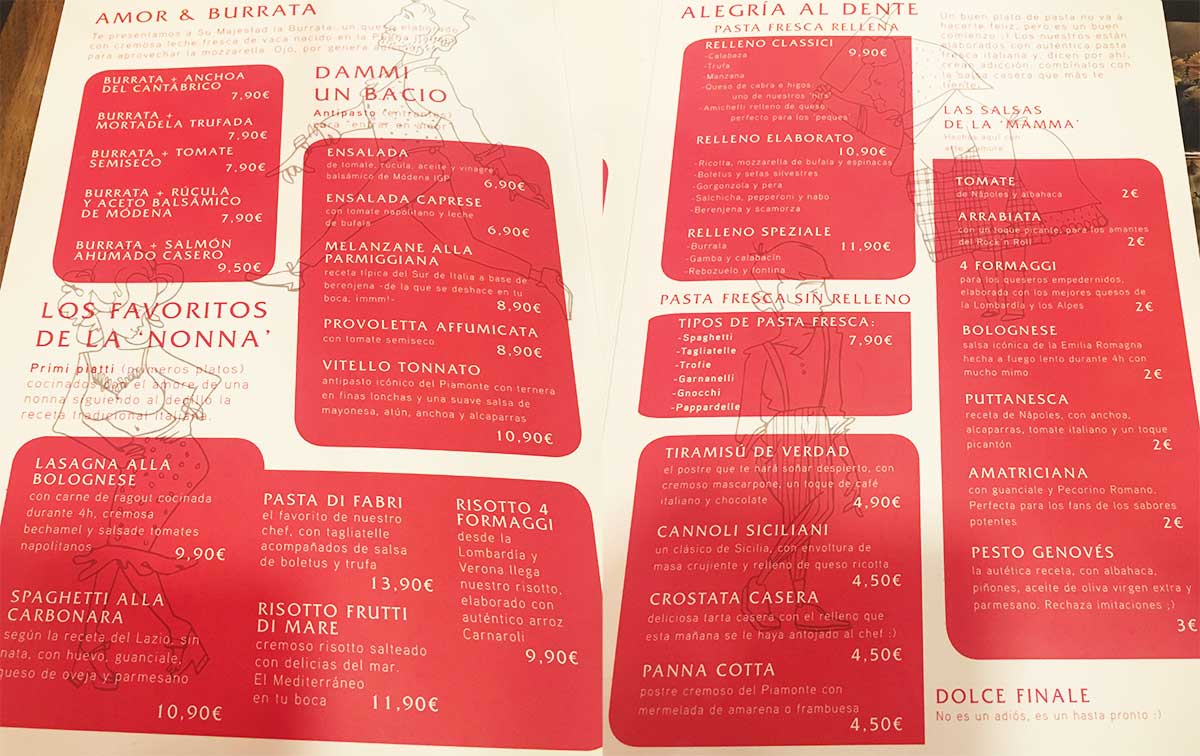 AMOR & BURRATA
Te presentamos a Su Majestad la Burrata, un queso elaborado
con cremosa leche fresca de vaca nacido en la Puglia italiana
para aprovechar la mozzarella. Ojo, por genera adicción
BURRATA + ANCHOA
DEL CANTÁBRICO
7,90€
BURRATA +
MORTADELA TRUFADA
7,90€
BURRATA + TOMATE
SEMISECO
7,90€
BURRATA + RÚCULA
Y ACETO BALSÁMICO
DE MÓDENA
7,90€
BURRATA + SALMÓN
AHUMADO CASERO
9,50€
DAMMI
UN BACIO
Antipasto (entrantes)
para "entrar en amor"
ENSALADA
de tomate, rúcula, aceite y vinagre
balsámico de Módena IGP
6,90€
ENSALADA CAPRESE
con tomate napolitano y leche
de bufala
6,90€
MELANZANE ALLA
PARMIGGIANA
receta típica del Sur de Italia a base de
berenjena -de la que se deshace en tu
boca, immm!-
8,90€
PROVOLETTA AFFUMICATA
con tomate semiseco
8,90€
VITELLO TONNATO
antipasto icónico del Piamonte con ternera
en finas lonchas y una suave salsa de
mayonesa, atún, anchoa y alcaparras
10,90€
LOS FAVORITOS
DE LA 'NONNA'
Primi piatti (primeros platos)
cocinados con el amore de una
nonna siguiendo al dedillo la
receta tradicional italiana.
LASAGNA ALLA
BOLOGNESE
con carne de ragout cocinada
durante 4h, cremosa
bechamel y salsade tomates
napolitanos
9,90€
SPAGHETTI ALLA
CARBONARA
según la receta del Lazio, sin
nata, con huevo, guanciale,
queso de oveja y parmesano
10,90€
PASTA DI FABRI
el favorito de nuestro
chef, con tagliatelle
acompañados de salsa
de boletus y trufa
13,90€
RISOTTO FRUTTI
DI MARE
cremoso risotto salteado
con delicias del mar.
El Mediterráneo
en tu boca
11,90€
RISOTTO 4
FORMAGGI
desde la
Lombardía y
Verona llega
nuestro risotto,
elaborado con
auténtico arroz
Carnaroli
9,90€
ALEGRÍA AL DENTE
PASTA FRESCA RELLENA
RELLENO CLASSICI
9,90€
-Calabaza
-Trufa
-Manzana
-Queso de cabra e higos
uno de nuestros 'hits'
-Amichelli relleno de queso,
perfecto para los 'peques'
RELLENO ELABORATO
10,90€
-Ricotta, mozzarella de bufala y espinacas
-Boletus y setas silvestres
-Gorgonzola y pera
-Salchicha, pepperoni y nabo
-Berenjena y scamorza
RELLENO SPEZIALE
11,90€
-Burrala
-Gamba y calabacín
-Rebozuelo y fontina
PASTA FRESCA SIN RELLENO
TIPOS DE PASTA FRESCA:
7,90€
-Spaghetti
-Tagliatelle
-Trofie
-Garnanelli
-Gnocchi
-Pappardelle
TIRAMISÚ DE VERDAD
el postre que te hará soñar despierto, con
cremoso mascarpone, un toque de café
italiano y chocolate
4,90€
CANNOLI SICILIANI
un clásico de Sicilia, con envoltura de
masa crujiente y relleno de queso ricotta
4,50€
CROSTATA CASERA
deliciosa tarta casera con el relleno que
esta mañana se le haya antojado al chef :)
4,50€
PANNA COTTA
postre cremoso del Piamonte con
mermelada de amarena o frambuesa
4,50€
Un buen plato de pasta no va a
hacerte feliz, pero es un buen
comienzo ;) Los nuestros están
elaborados con auténtica pasta
fresca italiana y, dicen por ahí,
crean adicción, combínalos con
la salsa casera que más te
tiente:
LAS SALSAS
DE LA 'MAMMA'
Hechas aquí con
TOMATE
de Nápoles y albahaca
2€
ARRABIATA
con un toque picante, para los amantes
del Rock'n Roll
2€
4 FORMAGGI
para los queseros empedernidos,
elaborada con los mejores quesos de
la Lombardía y los Alpes
2€
BOLOGNESE
salsa icónica de la Emilia Romagna
hecha a fuego lento durante 4h con
mucho mimo
2€
PUTTANESCA
receta de Nápoles, con anchoa,
alcaparras, tomate italiano y un toque
picantón
2€
AMATRICIANA
con guanciale y Pecorino Romano.
Perfecta para los fans de los sabores
potentes
2€
PESTO GENOVÉS
la autética receta, con albahaca,
piñones, aceite de oliva virgen extra y
parmesano. Rechaza imitaciones ;)
3€
DOLCE FINALE
No es un adiós, es un hasta pronto :)